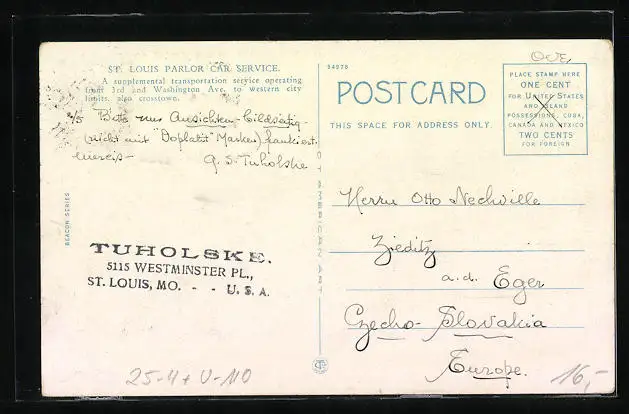 ST. LOUIS PARLOR CAR SERVICE.
A supplemental transportation service operating
from 3rd and Washington Ave. to western city
limits, also crosstown.
Bitte nur Ansichten-Bildseitig
(nicht mit "Doplatit" Marken) frankiert
retour –
G. S. Tuholske
BEACON SERIES
TUHOLSKE.
5115 WESTMINSTER PL.,
ST. LOUIS, MO. - - U. S. A.
25-4+U-110
AMERICAN ART
54978
POSTCARD
THIS SPACE FOR ADDRESS ONLY.
PLACE STAMP HERE
ONE CENT
FOR UNITED STATES
AND ISLAND
POSSESSIONS, CUBA,
CANADA AND MEXICO
TWO CENTS
FOR FOREIGN
Herrn Otto Nechville
Zieditz
a.d. Eger
Czecho-Slovakia
Europe.
16,-